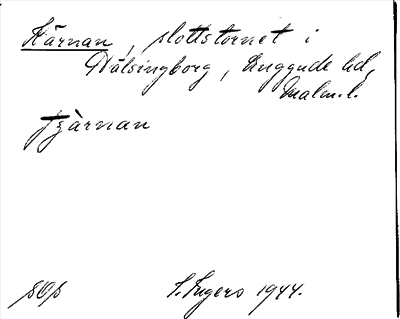 Kärnan, slottstornet i
Hälsingborg, Luggude hd,
Malm. l.
tjärnan
sOs S. Ingers 1944.